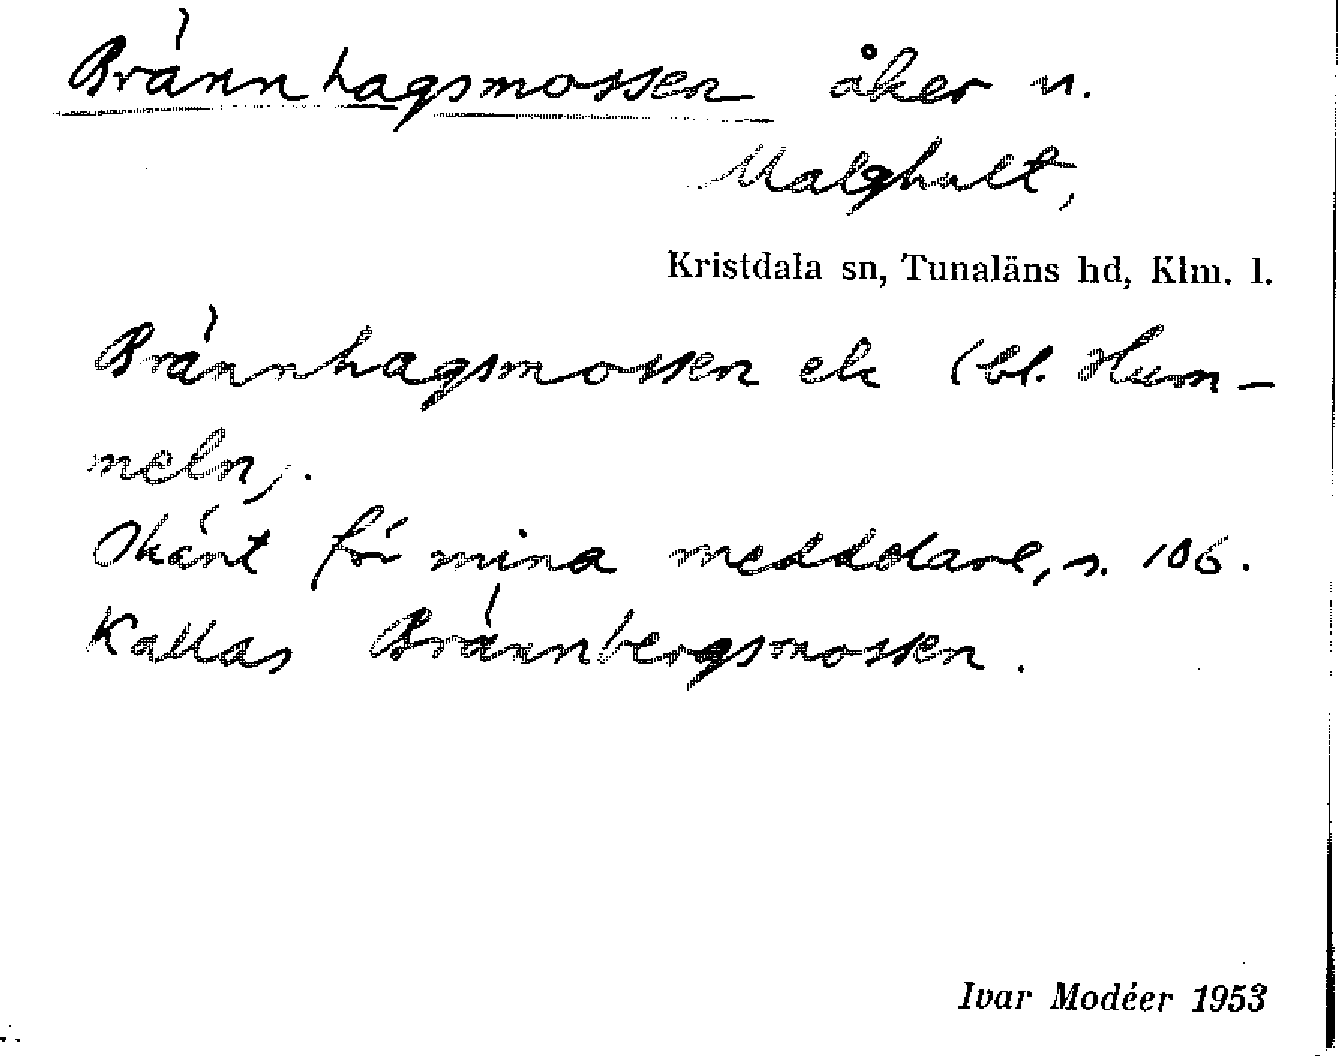 Brännhagsmossen åker u.
Malghult,
Kristdala sn, Tunaläns hd, Klm. l.
Brännhagsmossen ek (bl. Hum-
meln).
Okänt för mina meddelare, s. 106.
Kallas Brännbergsmossen.
Ivar Modéer 1953